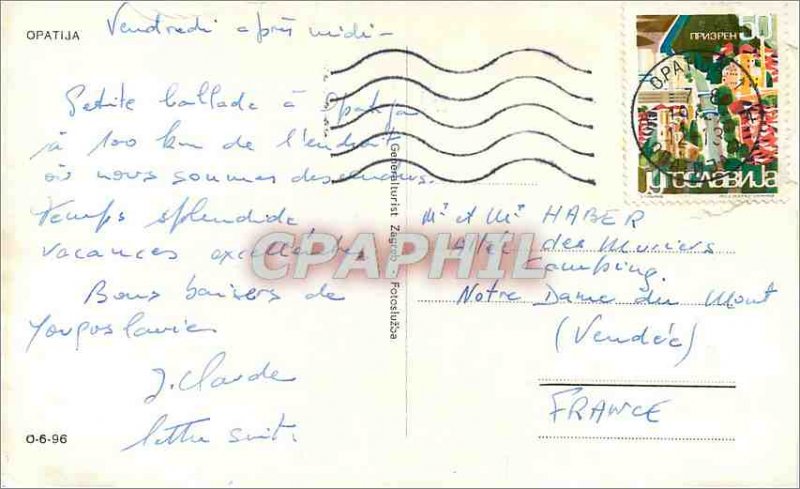 OPATIJA
Vendredi après midi -
Petite ballade à Opatija
à 100 km de l'endroit
où nous sommes descendus.
Temps splendide
vacances excellentes
Bons baisers de
Yougoslavie
J. Claude
lettre suit.
O-6-96
Generalturist Zagreb - Fotoslužba
ПРИЗРЕН 50
ЈУГОСЛАВИЈА
OPAT
Mr et Mme HABER
Allée des Muriers
Camping.
Notre Dame du Mont
(Vendée)
FRANCE
CPAPHIL